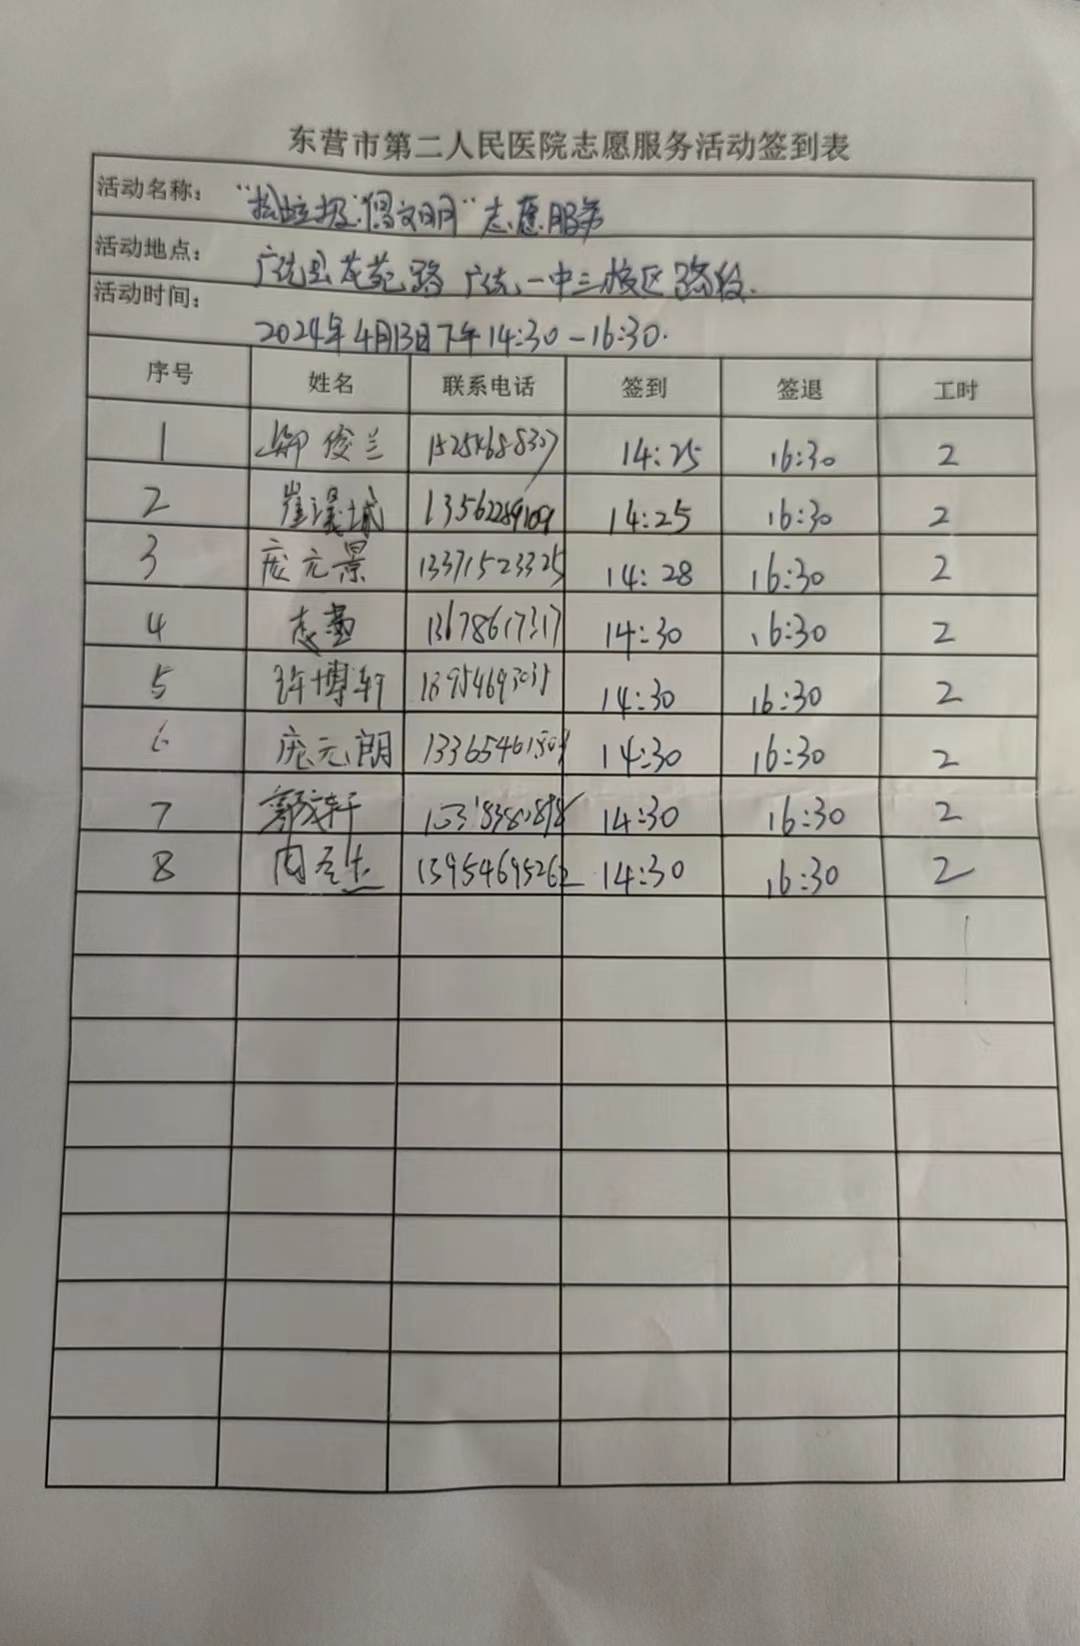 东营市第二人民医院志愿服务活动签到表
活动名称： "捡垃圾 倡文明" 志愿服务
活动地点： 广饶县花苑路 广饶一中三校区路段.
活动时间： 2024年4月13日下午14:30-16:30.
序号 姓名 联系电话 签到 签退 工时
1 俊兰 14:25 16:30 2
2 崔漠城 13562289109 14:25 16:30 2
3 庞元景 13371523325 14:28 16:30 2
4 13678617317 14:30 16:30 2
5 许博轩 14:30 16:30 2
6 庞元朗 14:30 16:30 2
7 郭轩 14:30 16:30 2
8 周 13954695262 14:30 16:30 2